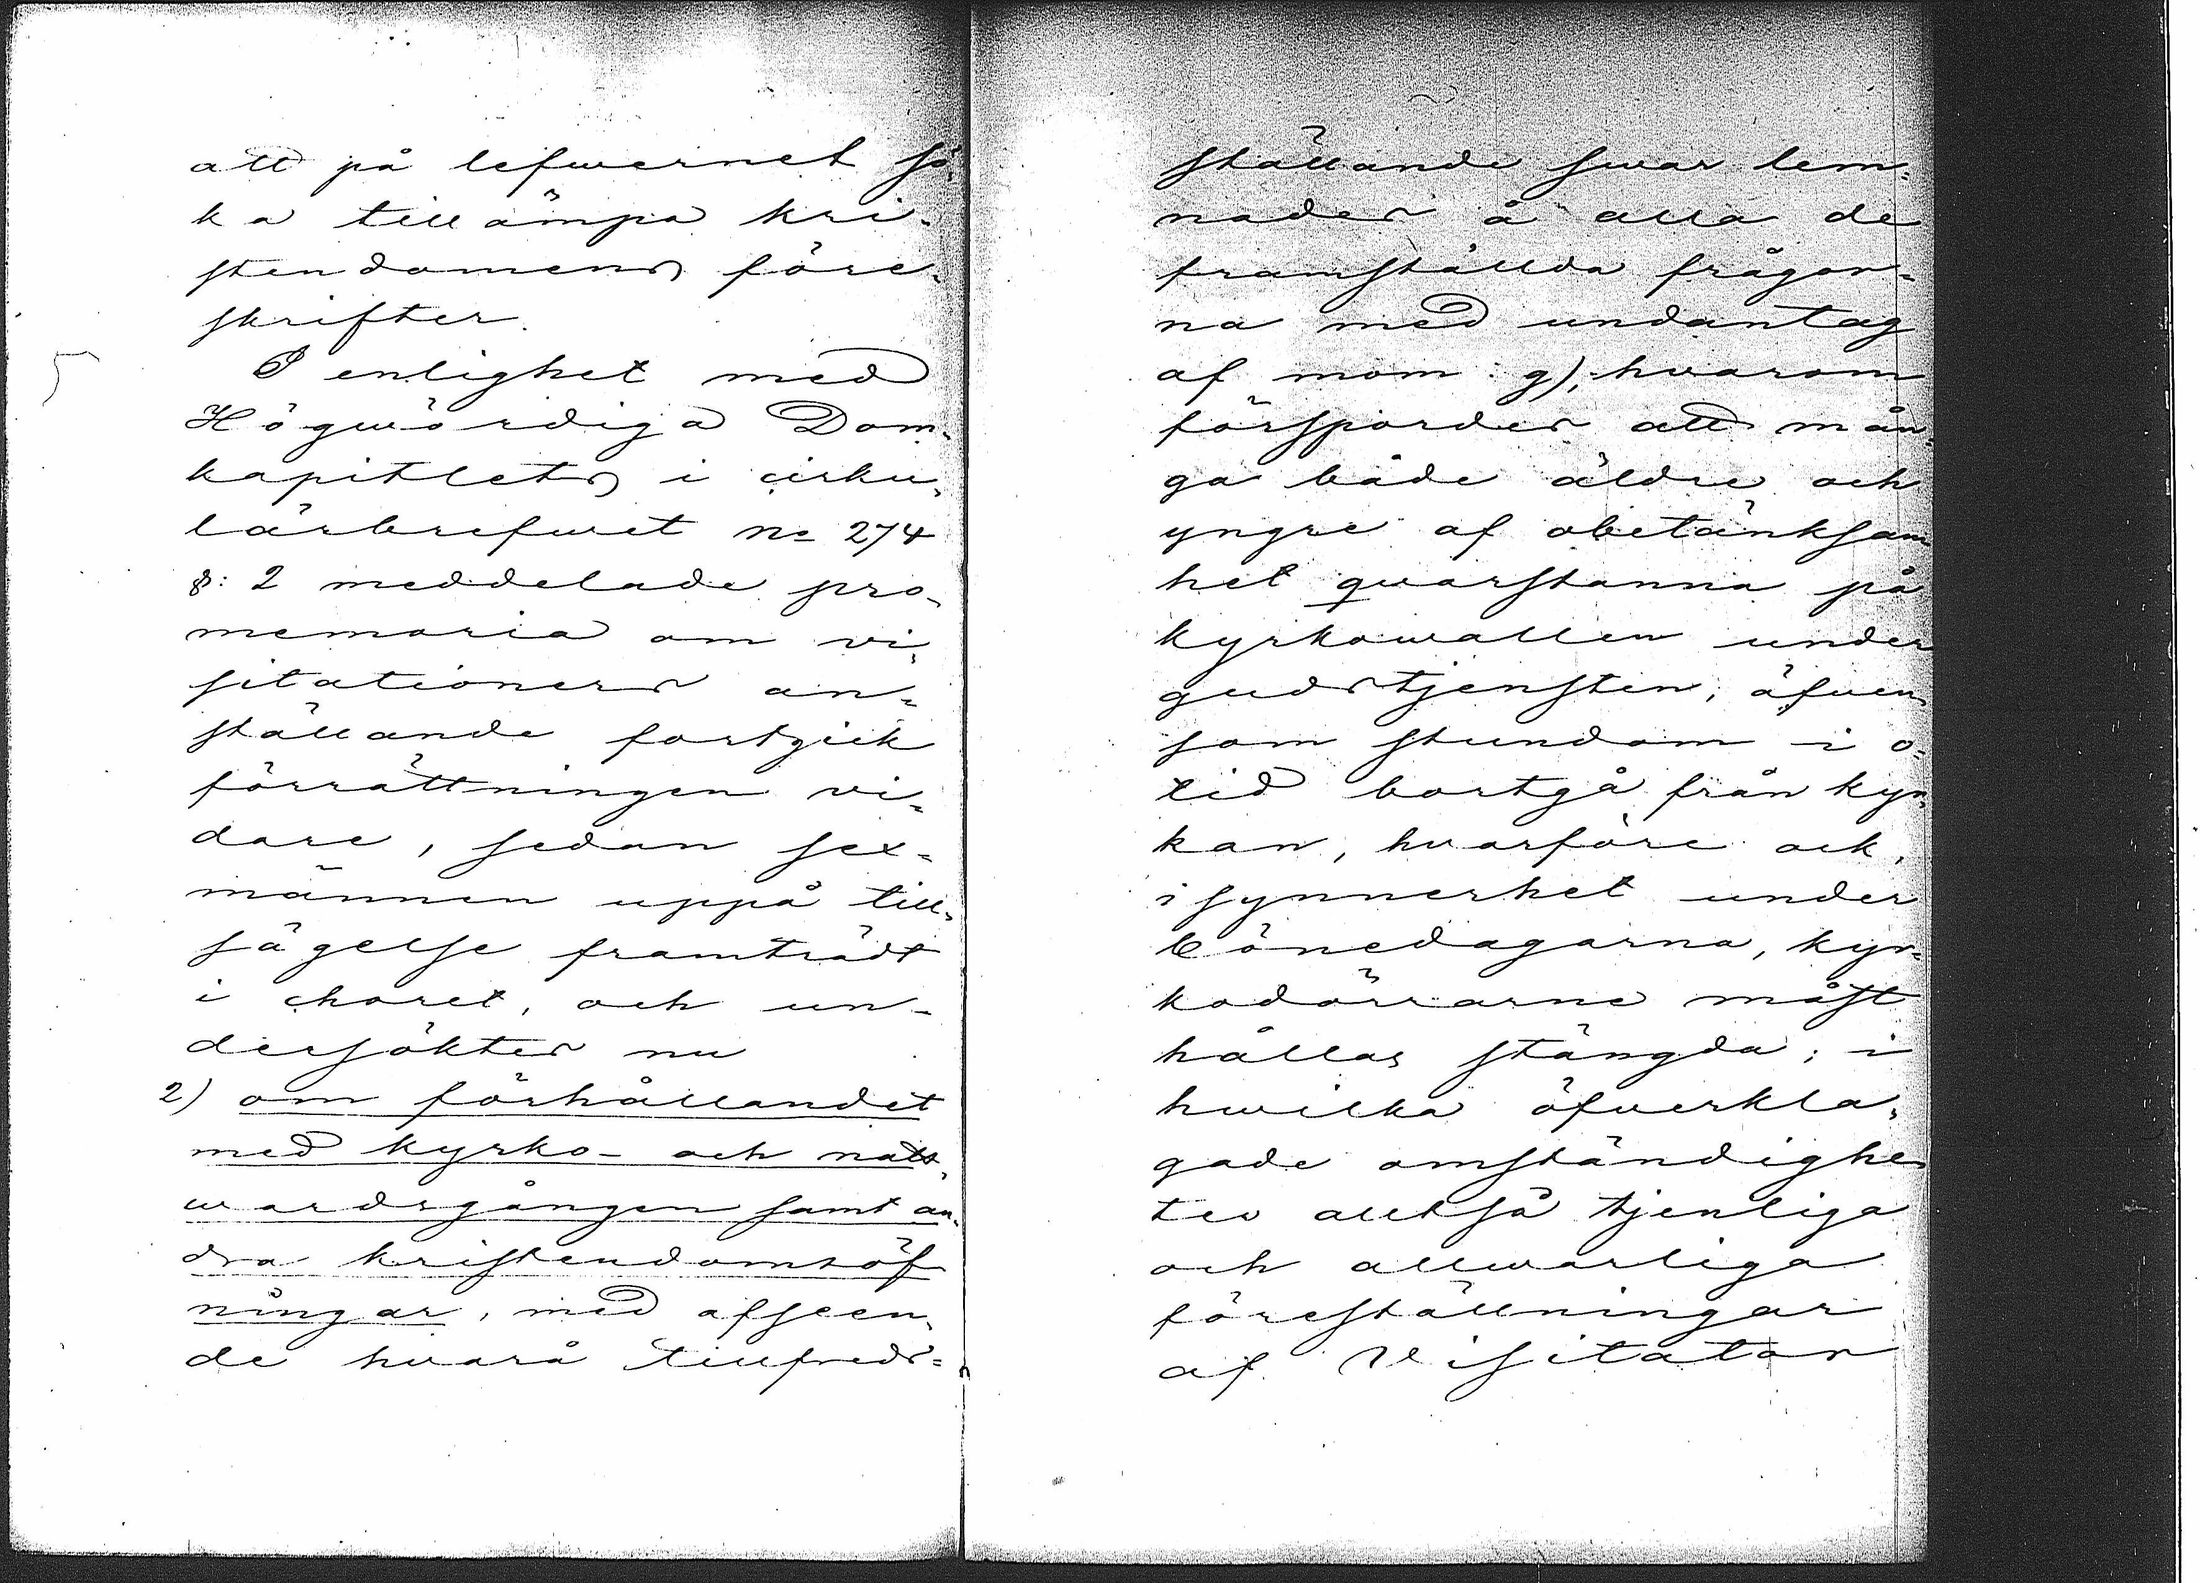 att på lefwernet sö-
ka tillämpa kri-
stendomens före-
skrifter.
I enlighet med
Högwördiga Dom-
kapitlets i cirku-
lärbrefwet No 274
§: 2 meddelade pro-
memoria om vi-
sitationers an-
ställande fortgick
förrättningen vi-
dare, sedan sex-
männen uppå till-
sägelse framträdt
i choret, och un-
dersöktes nu
2) om förhållandet
med kyrko- och natt-
wardsgången samt an-
dra kristendomsöf
ningar, med afseen-
de hvarå tillfreds-
ställande swar lem-
nades å alla de
framställda frågor-
na med undantag
af mom: g), hvarom
förspordes att mån-
ga både äldre och
yngre af obetänksam
het qwarstanna på
kyrkowallen under
gudstjensten, äfven
som stundom i o-
tid bortgå från kyr-
kan, hvarföre ock,
i synnerhet under
bönedagarna, kyr-
kodörrarne måst
hållas stängda; i
hwilka öfverkla-
gade omständighe
ter alltså tjenliga
och allwarliga
föreställningar
af Visitator